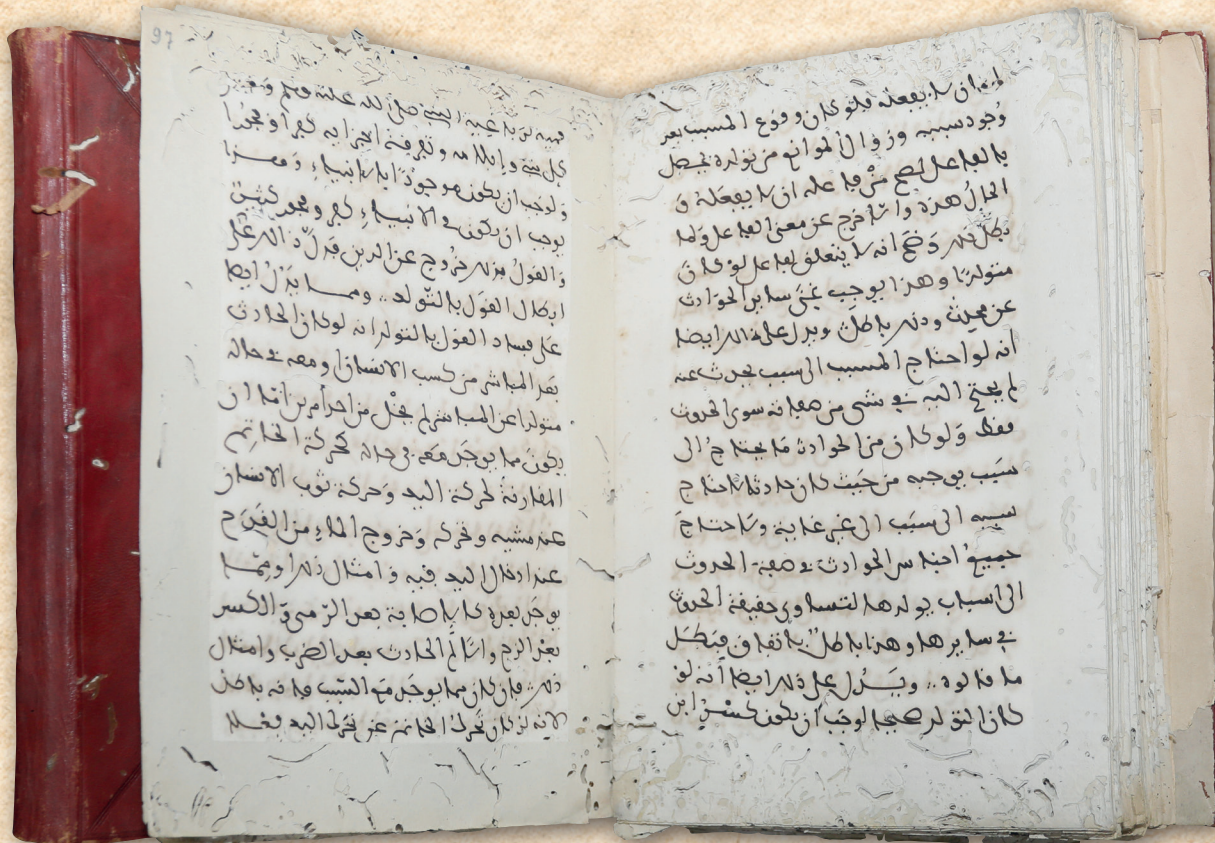 وإما ان لا يفعله فلو كان وقوع المسبب بعد
وُجود سببه وزوال الموانع من تولده يحصل
بالفاعل لصح من فاعله ان لا يفعله و
الحالُ هذه والا خرج عن معنى الفاعل ولما
بطل ذلك وَضَحَ انه لا يتعلق بفاعل لو كان
متولدًا وهذا يوجب غنى ساير الحوادث
عن محدث وذلك باطل ويدل على ذلك ايضا
أنه لو احتاج المسبب الى سبب يحدث عنه
لم يحتج اليه في شي من صفاته سوى الحدوث
فقط وَلو كان من الحوادث مَا يحتاجُ الى
سَبَب يوجبه من حَيث كان حادثا لاحتاج
سببه الى سبَب الى غير غاية ولاحتاجَ
جميعُ اجناس الحوادث في صفة الحدوث
الى اسباب يولدها لتساوي حقيقة الحدوث
في سايرها وهذا باطلٌ باتفاق فبَطَل
ما قالوه .. ويَدُل على ذلك ايضا أنه لو
كان التولد صحيحا لوجَب أن يكون كسر ابن
97
قميه لرباعية النبي صلى الله عليه وسلم
كل نبي وإيلامه وتفرقة اجزايه كفرا وفجورا
ولوجب ان يكون موجودًا بالانبياءِ وهذا
يوجب ان يكون في الانبياءِ كفر وفجور كثير
وَالقولُ بذلك خرُوج عن الدين فدَلّ ذلك عَلى
ابطال القوَل بالتّولد .. ومما يَدُلُ ايضا
على فساد القول بالتولد انه لو كان الحادث
بعد المباشر من كسب الانسان او معه في حاله
متولدا عن المباشر لم يخل من احد أمرين أما ان
يكونَ مما يوجَد مَعَه في حاله كحركة الخاتم
المقارنة لحركة اليد وَحركة ثوب الانسان
عند مشيه وتحركه وَخروج الماءِ من القَدَح
عند ادخال اليد فيه وَامثال ذلك او مما
يوجَد بعده كالاصابة بعد الرّمي وَالكسر
بعد الزج والألَم الحادث بعد الضَرب وامثال
ذلك فان كان مما يوجَد مَع السَبب فانه باطل
لانه لو كان تحرك الخاتم عن تحرك اليد فعلا